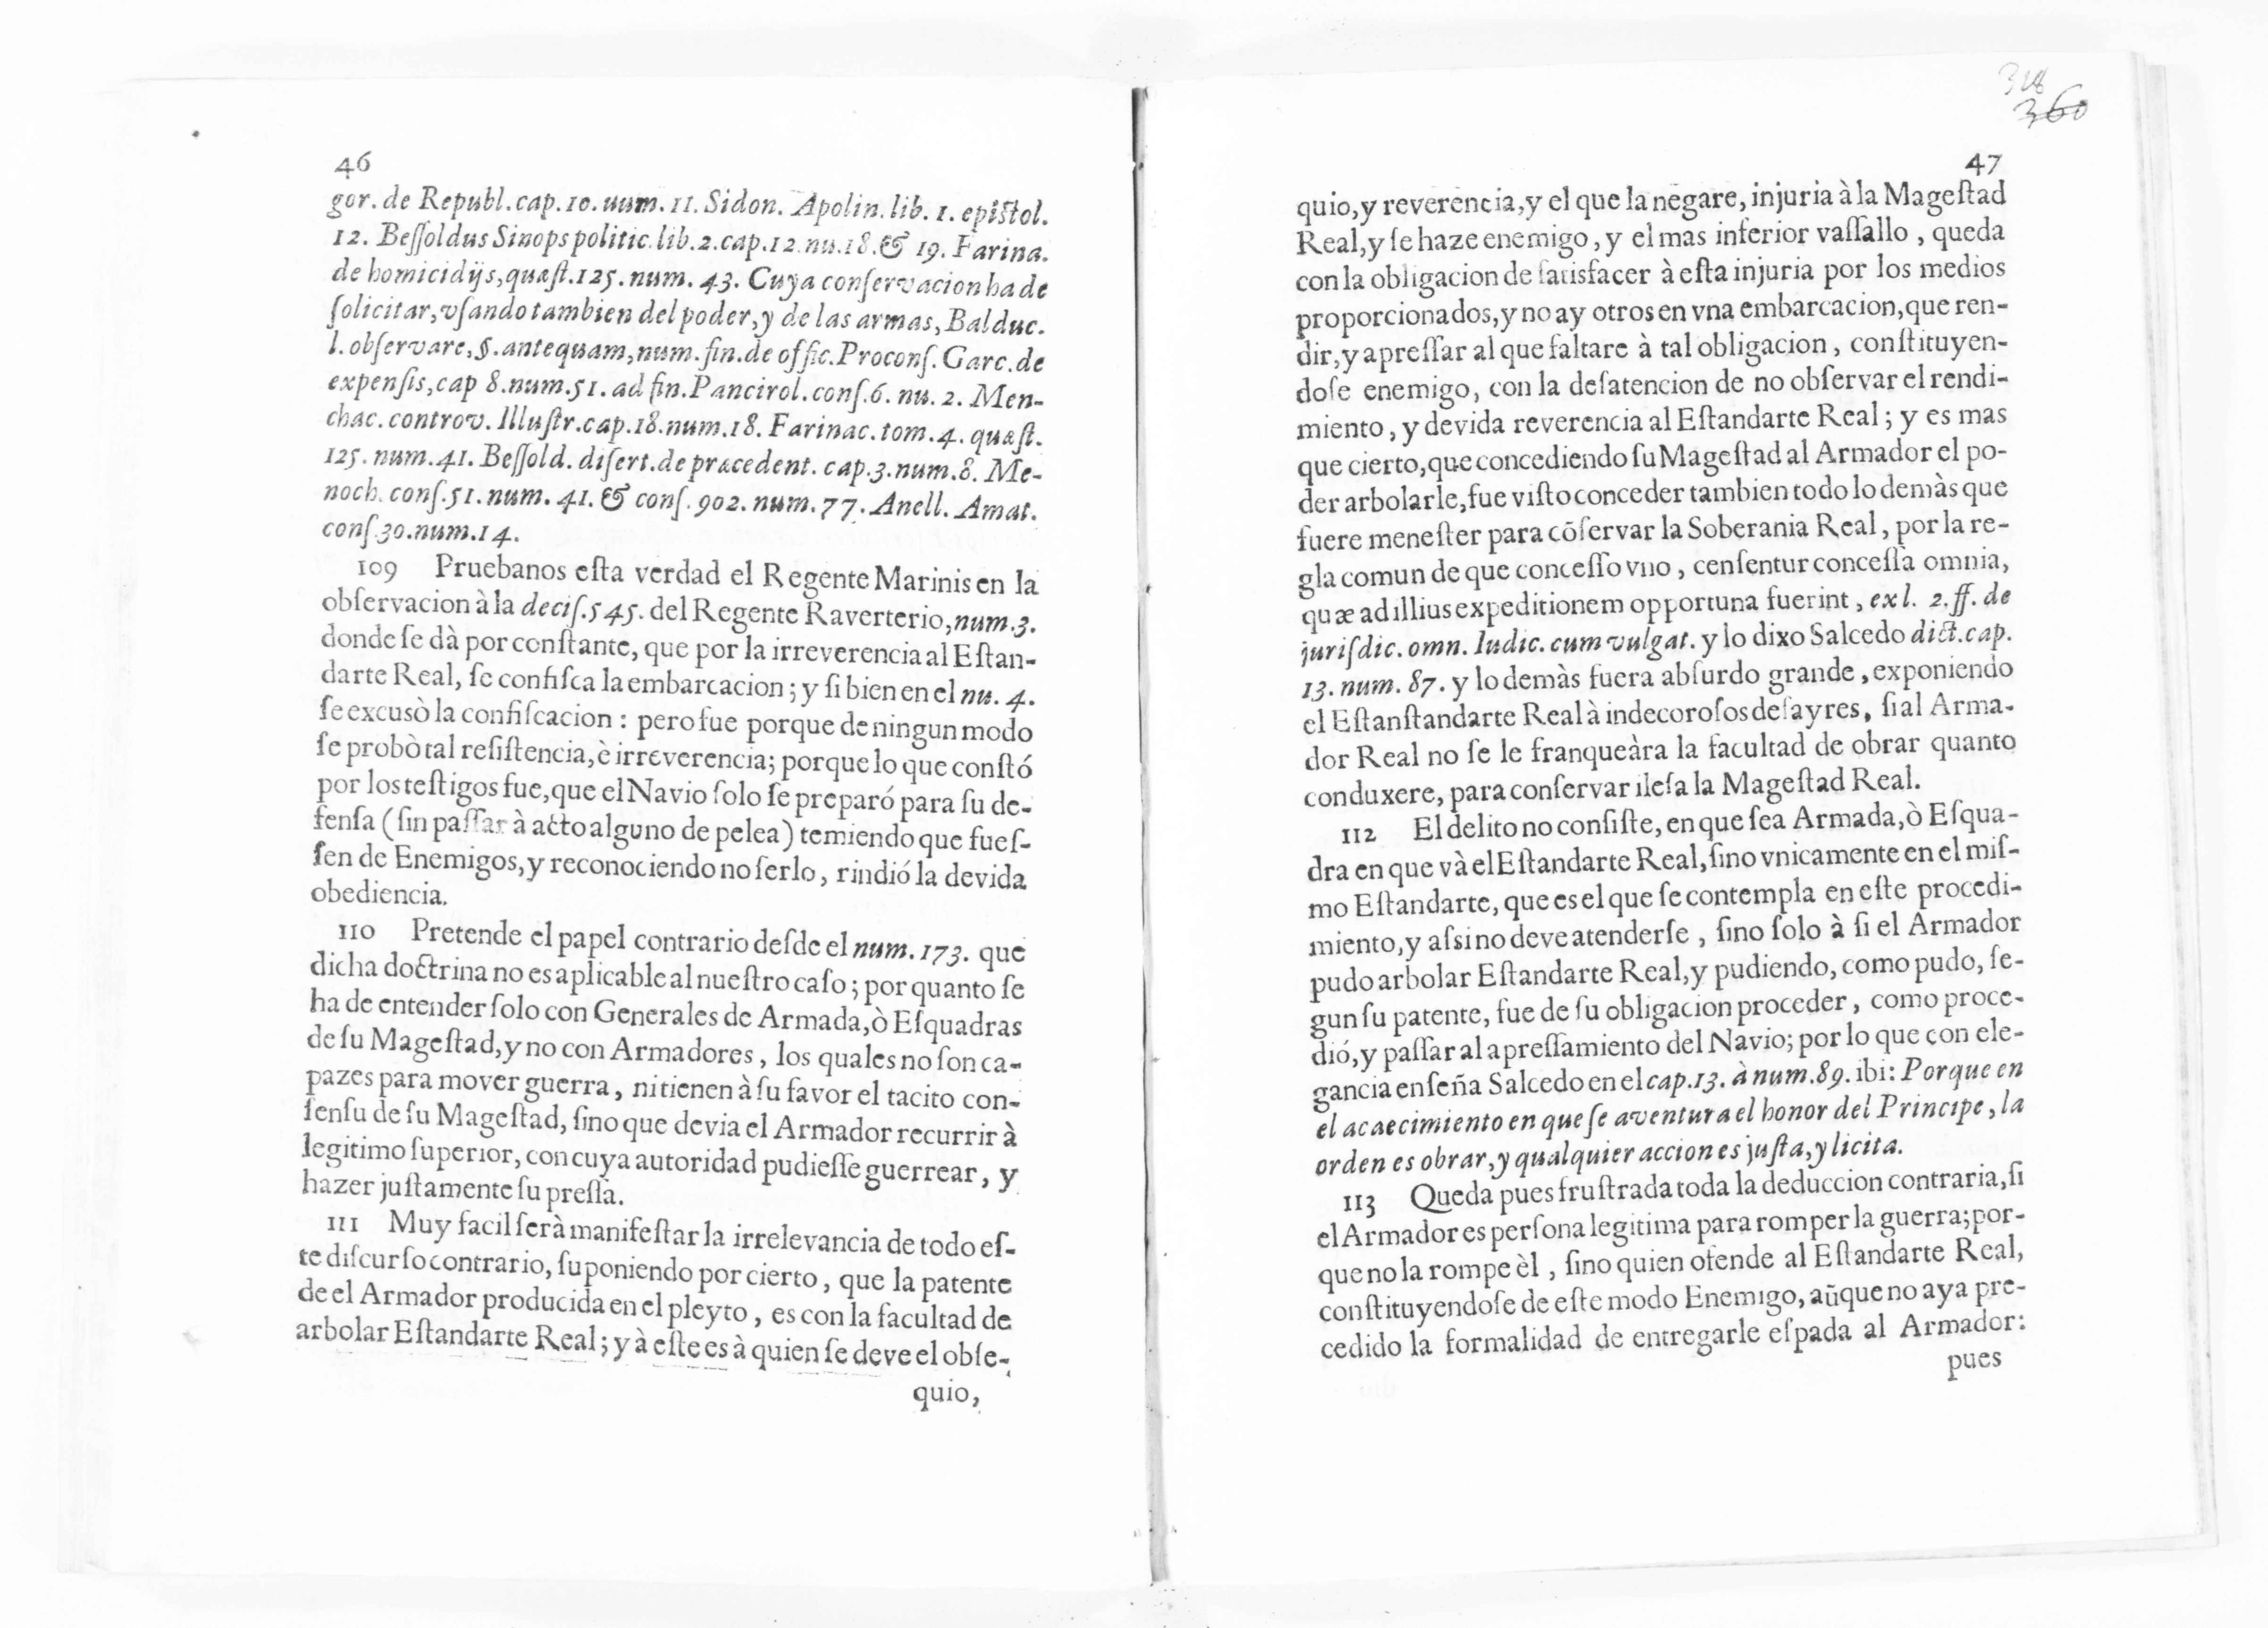 46
gor. de Republ. cap. 10. uum. 11. Sidon. Apolin. lib. 1. epistol.
12. Beſſoldus Sinops politic. lib. 2. cap. 12. nu. 18. & 19. Farina.
de homicidijs, quæſt. 125. num. 43. Cuya conſervacion ha de
ſolicitar, vſando tambien del poder, y de las armas, Balduc.
l. obſervare, §. antequam, num. fin. de offic. Proconſ. Garc. de
expenſis, cap 8. num. 51. ad fin. Pancirol. conſ. 6. nu. 2. Men-
chac. controv. Illuſtr. cap. 18. num. 18. Farinac. tom. 4. quæſt.
125. num. 41. Beſſold. diſert. de præcedent. cap. 3. num. 8. Me-
noch. conſ. 51. num. 41. & conſ. 902. num. 77. Anell. Amat.
conſ. 30. num. 14.
109 Pruebanos eſta verdad el Regente Marinis en la
obſervacion à la deciſ. 545. del Regente Raverterio, num. 3.
donde ſe dà por conſtante, que por la irreverencia al Eſtan-
darte Real, ſe confiſca la embarcacion; y ſi bien en el nu. 4.
ſe excusò la confiſcacion: pero fue porque de ningun modo
ſe probò tal reſiſtencia, è irreverencia; porque lo que conſtó
por los teſtigos fue, que el Navio ſolo ſe preparó para ſu de-
fenſa (ſin paſſar à acto alguno de pelea) temiendo que fueſ-
ſen de Enemigos, y reconociendo no ſerlo, rindió la devida
obediencia.
110 Pretende el papel contrario deſde el num. 173. que
dicha doctrina no es aplicable al nueſtro caſo; por quanto ſe
ha de entender ſolo con Generales de Armada, ò Eſquadras
de ſu Mageſtad, y no con Armadores, los quales no ſon ca-
pazes para mover guerra, ni tienen à ſu favor el tacito con-
ſenſu de ſu Mageſtad, ſino que devia el Armador recurrir à
legitimo ſuperior, con cuya autoridad pudieſſe guerrear, y
hazer juſtamente ſu preſſa.
111 Muy facil ſerà manifeſtar la irrelevancia de todo eſ-
te diſcurſo contrario, ſuponiendo por cierto, que la patente
de el Armador producida en el pleyto, es con la facultad de
arbolar Eſtandarte Real; y à eſte es à quien ſe deve el obſe-
quio,
318
360
47
quio, y reverencia, y el que la negare, injuria à la Mageſtad
Real, y ſe haze enemigo, y el mas inferior vaſſallo, queda
con la obligacion de ſatisfacer à eſta injuria por los medios
proporcionados, y no ay otros en vna embarcacion, que ren-
dir, y apreſſar al que faltare à tal obligacion, conſtituyen-
doſe enemigo, con la deſatencion de no obſervar el rendi-
miento, y devida reverencia al Eſtandarte Real; y es mas
que cierto, que concediendo ſu Mageſtad al Armador el po-
der arbolarle, fue viſto conceder tambien todo lo demàs que
fuere meneſter para cõſervar la Soberania Real, por la re-
gla comun de que conceſſo vno, cenſentur conceſſa omnia,
quæ ad illius expeditionem opportuna fuerint, ex l. 2. ff. de
juriſdic. omn. Iudic. cum vulgat. y lo dixo Salcedo dict. cap.
13. num. 87. y lo demàs fuera abſurdo grande, exponiendo
el Eſtanſtandarte Real à indecoroſos deſayres, ſi al Arma-
dor Real no ſe le franqueàra la facultad de obrar quanto
conduxere, para conſervar ileſa la Mageſtad Real.
112 El delito no conſiſte, en que ſea Armada, ò Eſqua-
dra en que và el Eſtandarte Real, ſino vnicamente en el miſ-
mo Eſtandarte, que es el que ſe contempla en eſte procedi-
miento, y aſsi no deve atenderſe, ſino ſolo à ſi el Armador
pudo arbolar Eſtandarte Real, y pudiendo, como pudo, ſe-
gun ſu patente, fue de ſu obligacion proceder, como proce-
dió, y paſſar al apreſſamiento del Navio; por lo que con ele-
gancia enſeña Salcedo en el cap. 13. à num. 89. ibi: Porque en
el acaecimiento en que ſe aventura el honor del Principe, la
orden es obrar, y qualquier accion es juſta, y licita.
113 Queda pues fruſtrada toda la deduccion contraria, ſi
el Armador es perſona legitima para romper la guerra; por-
que no la rompe èl, ſino quien ofende al Eſtandarte Real,
conſtituyendoſe de eſte modo Enemigo, aũque no aya pre-
cedido la formalidad de entregarle eſpada al Armador:
pues